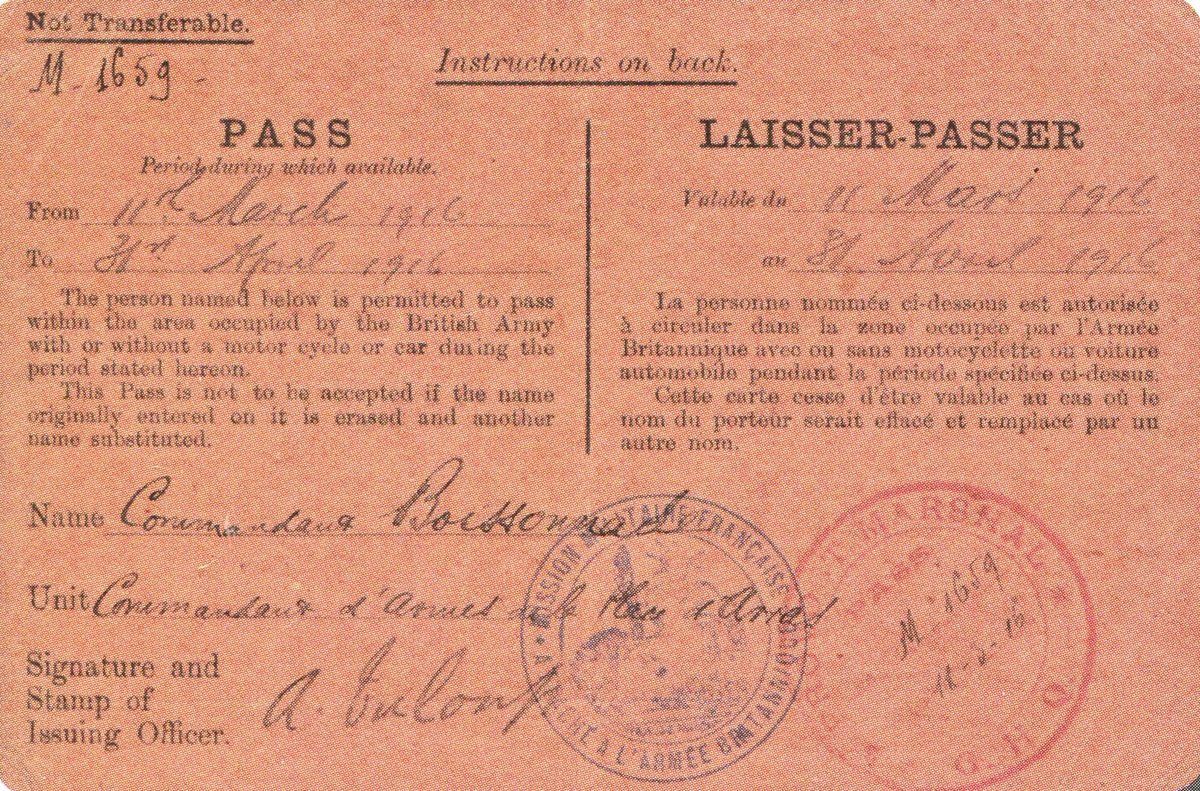 Not Transferable.
M-1659-
Instructions on back.
PASS
Period during which available.
From 11th March 1916
To 31st April 1916
The person named below is permitted to pass
within the area occupied by the British Army
with or without a motor cycle or car during the
period stated hereon.
This Pass is not to be accepted if the name
originally entered on it is erased and another
name substituted.
LAISSER-PASSER
Valable du 11 Mars 1916
au 31 Avril 1916
La personne nommée ci-dessous est autorisée
à circuler dans la zone occupée par l'Armée
Britannique avec ou sans motocyclette ou voiture
automobile pendant la période spécifiée ci-dessus.
Cette carte cesse d'être valable au cas où le
nom du porteur serait effacé et remplacé par un
autre nom.
Name Commandant Boissonnade
Unit Commandant d'Armes de la Place d'Arras
Signature and
Stamp of
Issuing Officer.
A.
MISSION MILITAIRE FRANÇAISE
ATTACHÉE À L'ARMÉE BRITANNIQUE
MARSHAL * G.H.Q.
PASS.
M-1659